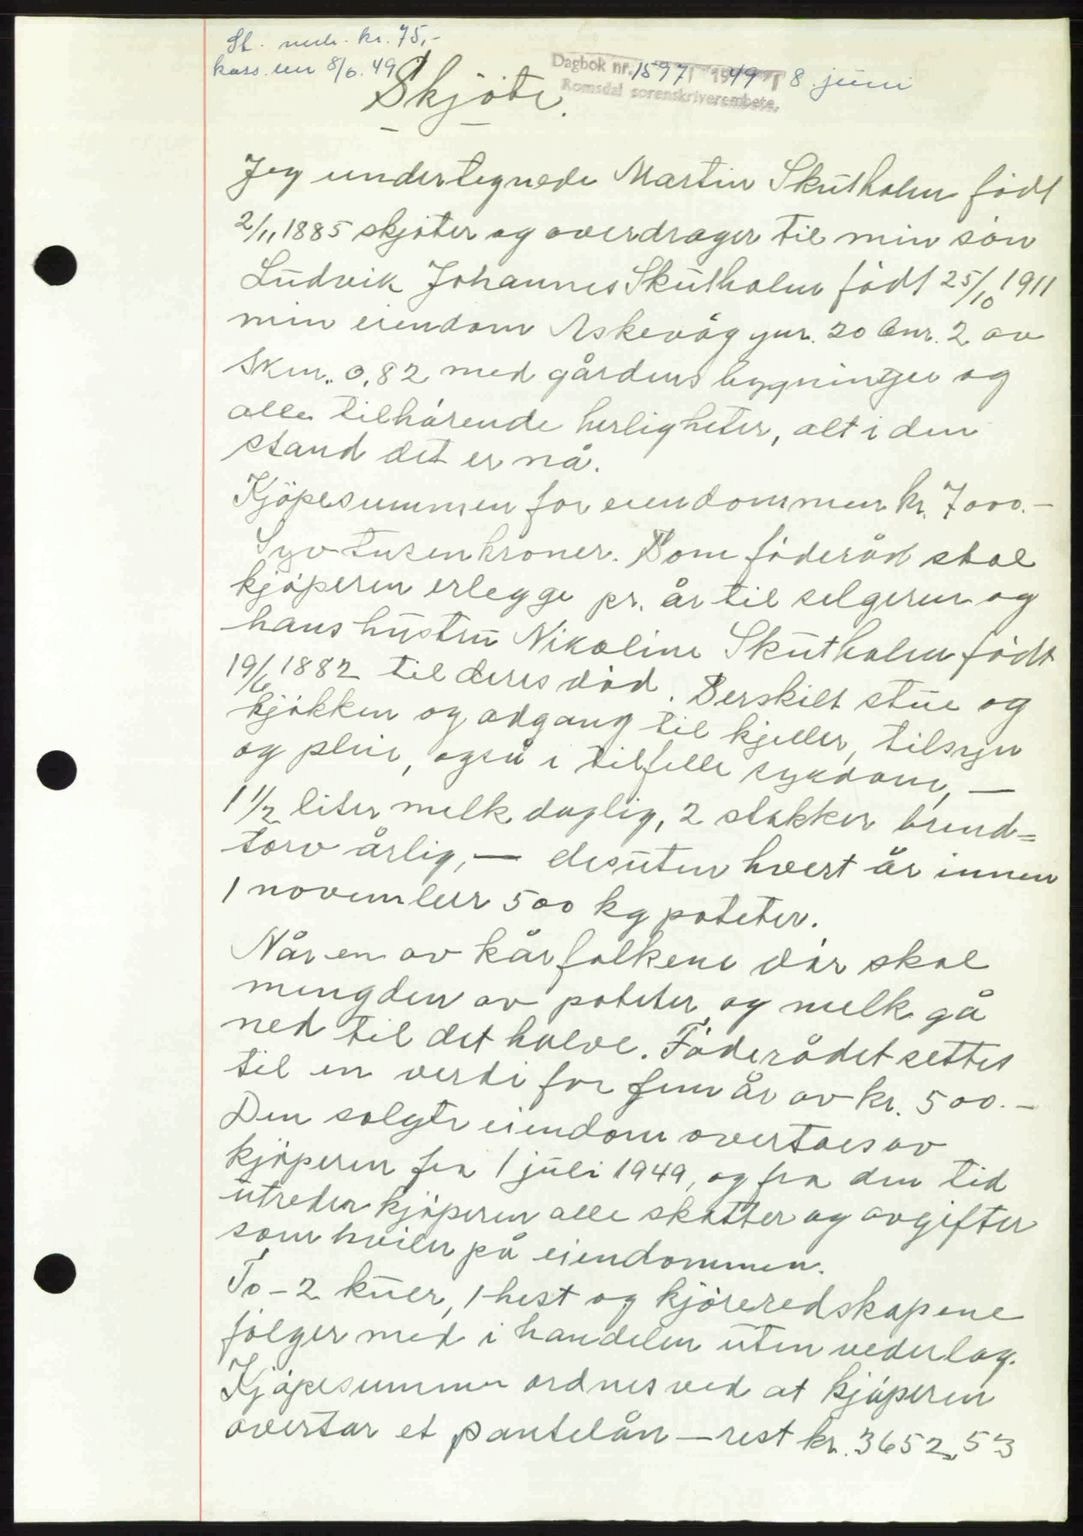 St. merk. kr. 75,-
kass. len 8/6. 49
Dagbok nr. 1597 1949 8. juni
Romsdal sorenskriverembete.
Skjöte.
Jeg undertegnede Martin Skutholm född
2/11, 1885 skjöter og overdrager til min sön
Ludvik Johannes Skutholm född 25/10 1911
min eiendom Askevåg gnr. 20 bnr. 2 av
Skm. 0,82 med gårdens bygninger og
alle tilhörende herligheter, alt i den
stand det er nå.
Kjöpesummen for eiendommen kr. 7000.-
Syv tusen kroner. Som föderåd skal
kjöperen erlegge pr. år til selgeren og
hans hustru Nikoline Skutholm född
19/6 1882 til deres död. Serskilt stue og
kjökken og adgang til kjeller, tilsyn
og pleie, også i tilfelle sykdom, —
1 1/2 liter melk daglig, 2 stakker brend=
torv årlig, — desuten hvert år innen
1 november 500 kg poteter.
Når en av kårfolkene dör skal
mengden av poteter og melk gå
ned til det halve. Föderådet settes
til en verdi for fem år av kr. 500.-
Den solgte eiendom overtaes av
kjöperen fra 1 juli 1949, og fra den tid
utreder kjöperen alle skatter og avgifter
som hviler på eiendommen.
To - 2 kuer, 1 hest og kjöreredskapene
fölger med i handelen uten vederlag.
Kjöpesummen ordnes ved at kjöperen
overtar et pantelån — rest kr. 3652,53